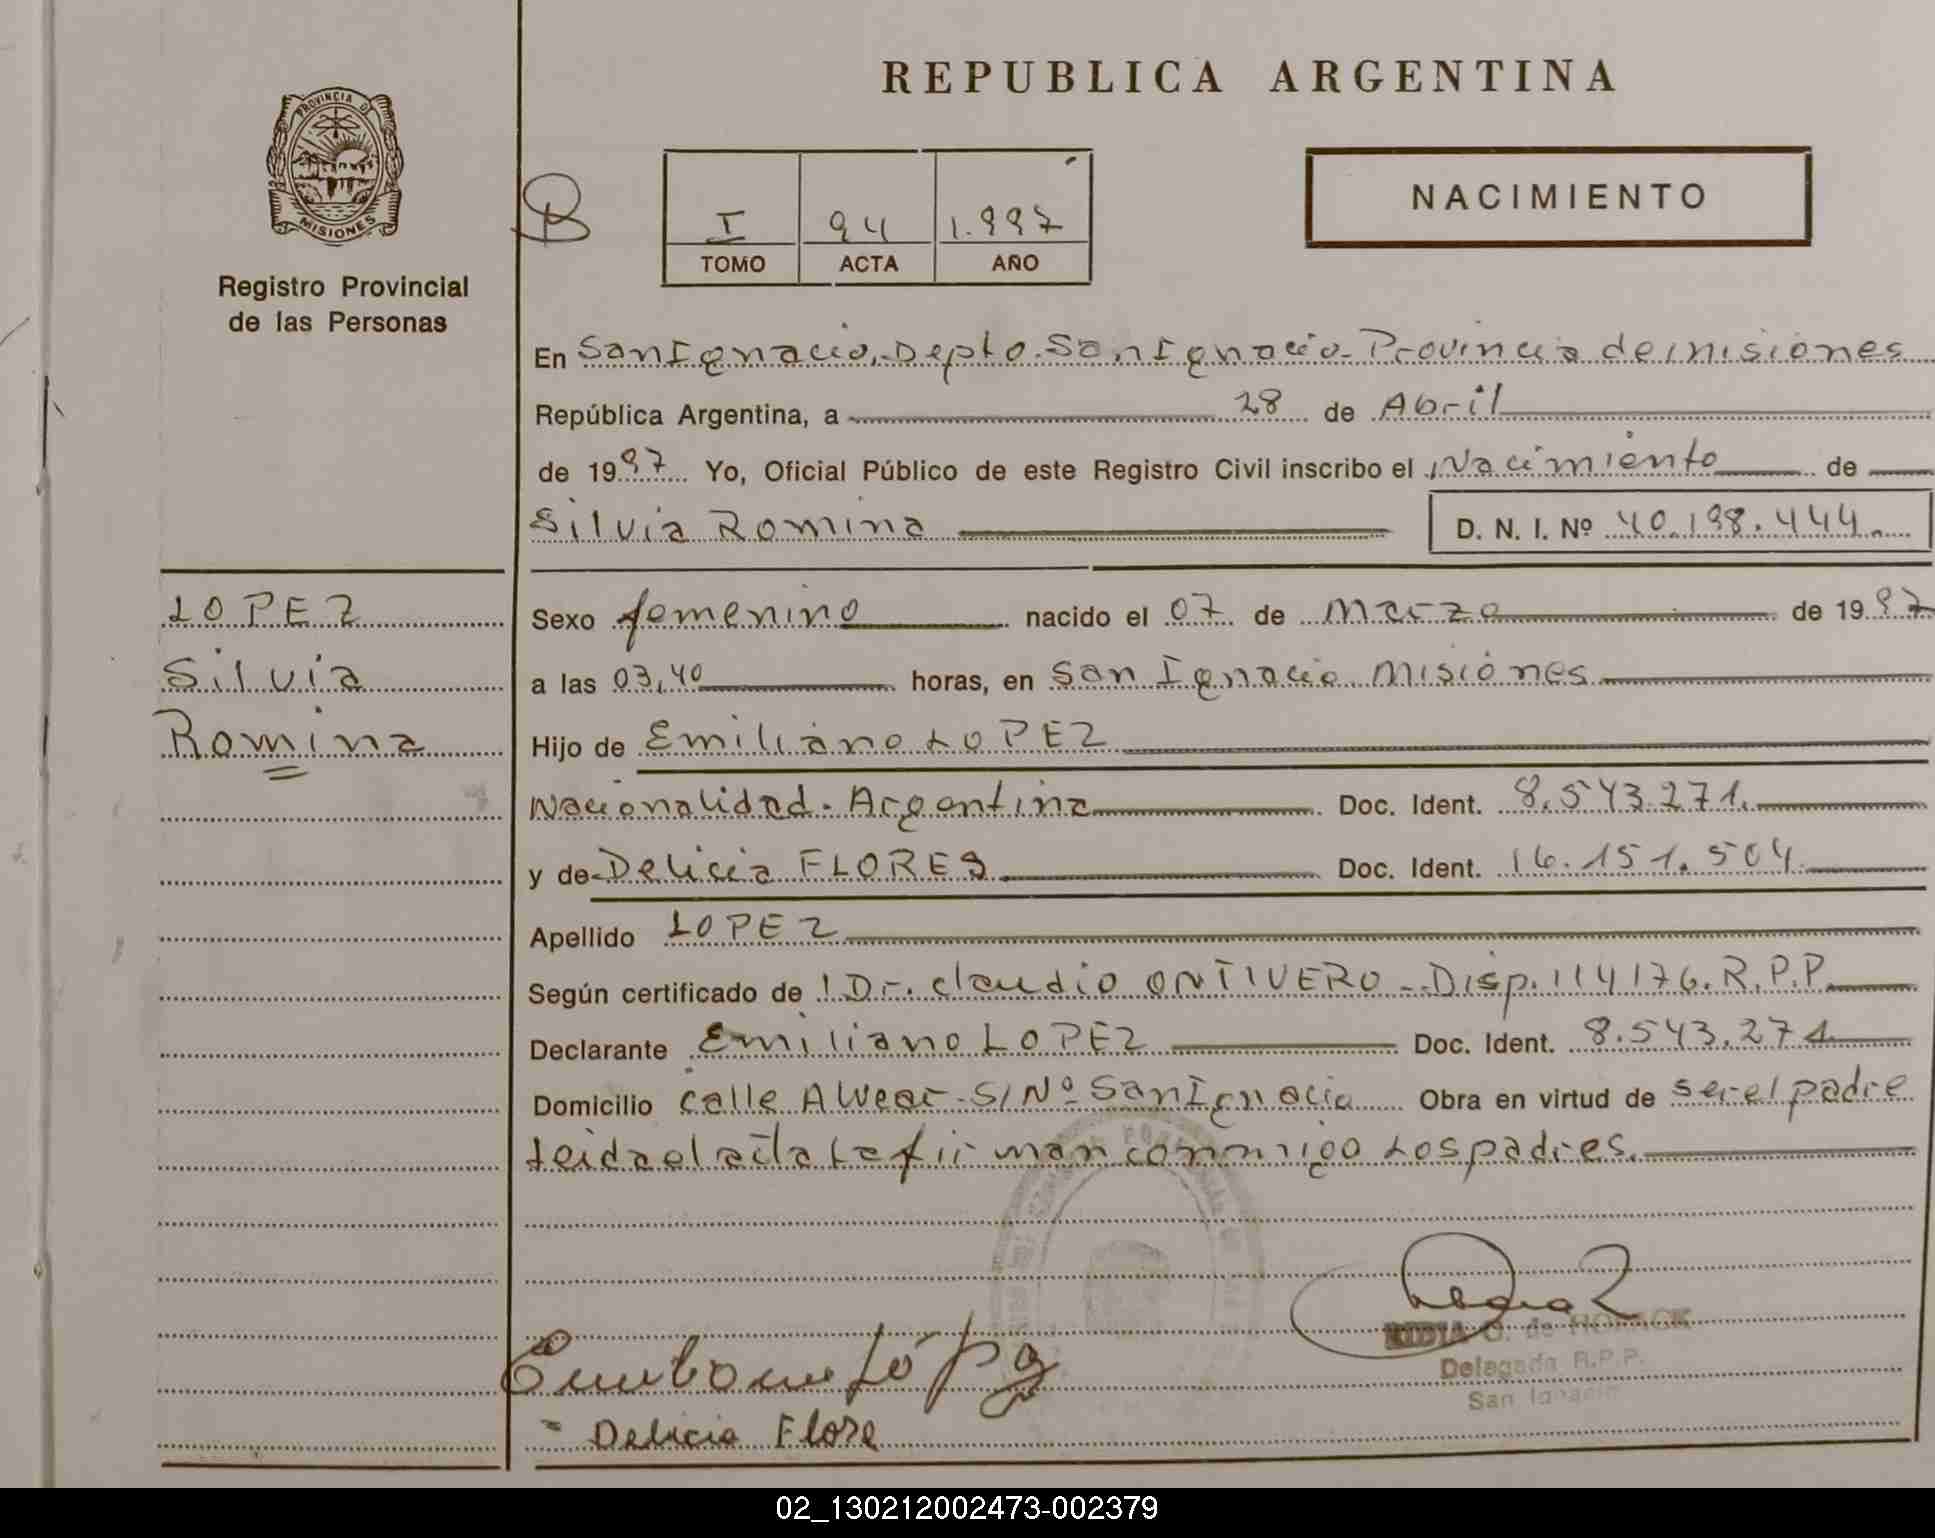 REPUBLICA ARGENTINA
PROVINCIA DE
MISIONES
Registro Provincial
de las Personas
B
I 94 1.997
TOMO ACTA AÑO
NACIMIENTO
En San Ignacio, Depto. San Ignacio - Provincia de Misiones
República Argentina, a 28 de Abril
de 1997 Yo, Oficial Público de este Registro Civil inscribo el Nacimiento de
Silvia Romina D. N. I. Nº 40.198.444.
LOPEZ
Silvia
Romina
Sexo femenino nacido el 07 de Marzo de 1997
a las 03,40 horas, en San Ignacio Misiones
Hijo de Emiliano LOPEZ
Nacionalidad. Argentina Doc. Ident. 8.543.271.
y de Delicia FLORES Doc. Ident. 16.151.504.
Apellido LOPEZ
Según certificado de Dr. Claudio ONTIVERO - Disp. 114/76. R.P.P.
Declarante Emiliano LOPEZ Doc. Ident. 8.543.271
Domicilio calle Alvear S/Nº San Ignacio Obra en virtud de ser el padre
Leida el acta la firman conmigo Los padres.
de
Delegada R.P.P.
San Ignacio
Delicia Flore
02_130212002473-002379